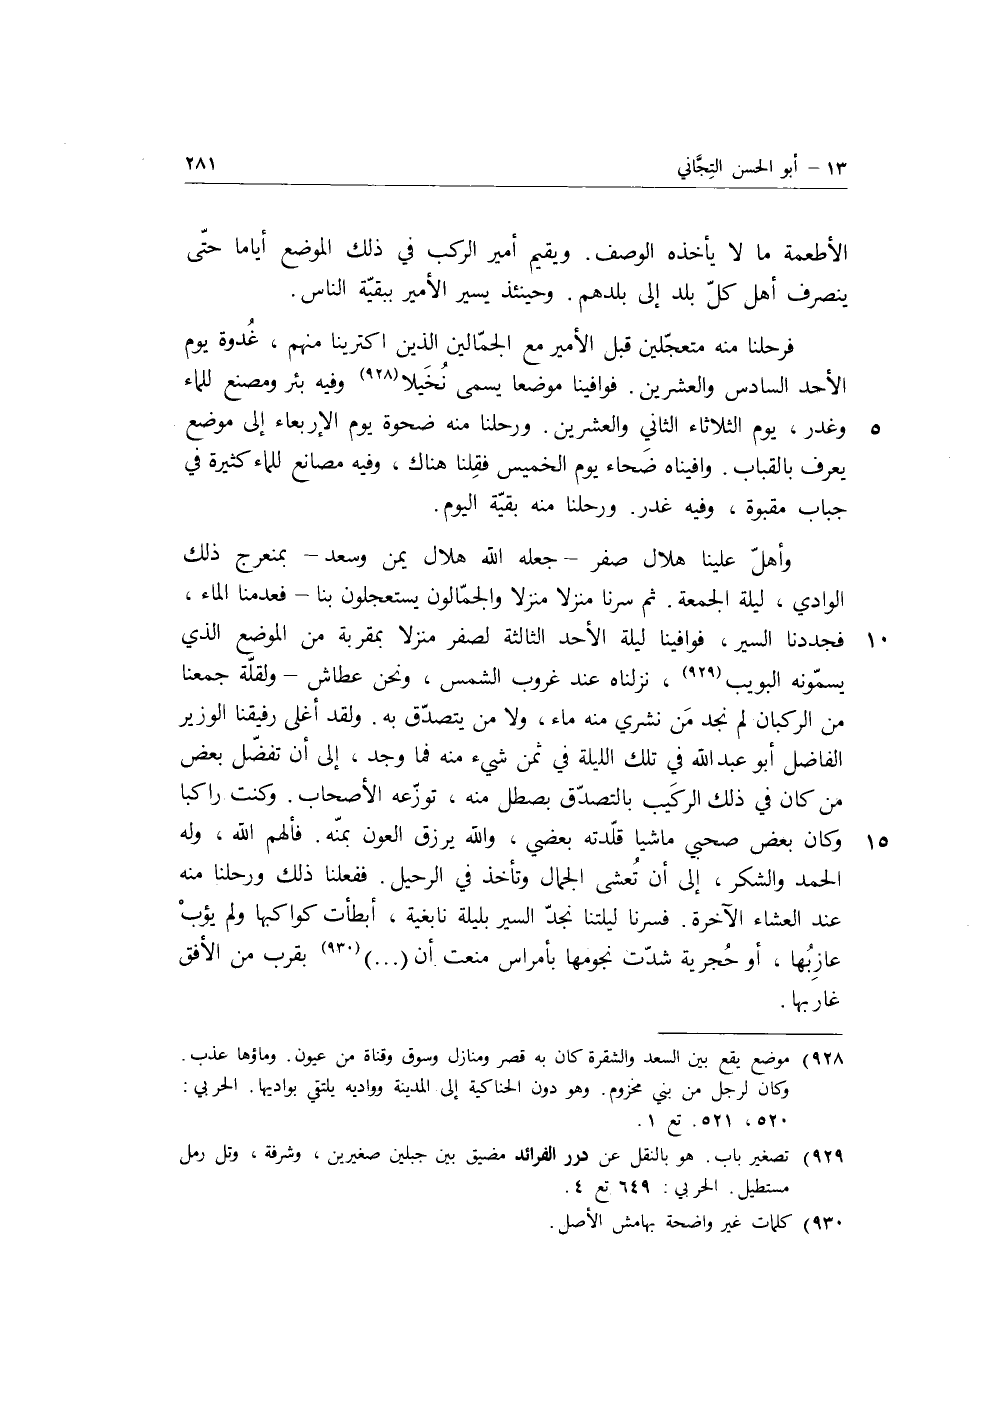 ١٣ – أبو الحسن التِجَّاني ٢٨١
الأطعمة ما لا يأخذه الوصف. ويقيم أمير الركب في ذلك الموضع أياما حتّى
ينصرف أهل كلّ بلد إلى بلدهم. وحينئذ يسير الأمير ببقيّة الناس.
فرحلنا منه متعجّلين قبل الأمير مع الجمّالين الذين اكترينا منهم ، غُدوة يوم
الأحد السادس والعشرين. فوافينا موضعا يسمى نُخَيلا(٩٢٨) وفيه بئر ومصنع للماء
٥ وغدر ، يوم الثلاثاء الثاني والعشرين. ورحلنا منه ضحوة يوم الإربعاء إلى موضع
يعرف بالقباب. وافيناه ضَحاء يوم الخميس فقِلنا هناك ، وفيه مصانع للماء كثيرة في
جباب مقبوة ، وفيه غدر. ورحلنا منه بقيّة اليوم.
وأهلّ علينا هلال صفر – جعله الله هلال يمن وسعد – بمنعرج ذلك
الوادي ، ليلة الجمعة. ثم سرنا منزلا منزلا والجمّالون يستعجلون بنا – فعدمنا الماء ،
١٠ فجددنا السير ، فوافينا ليلة الأحد الثالثة لصفر منزلا بمقربة من الموضع الذي
يسمّونه البويب(٩٢٩) ، نزلناه عند غروب الشمس ، ونحن عطاش – ولقلّة جمعنا
من الركبان لم نجد مَن نشري منه ماء ، ولا من يتصدّق به. ولقد أغلى رفيقنا الوزير
الفاضل أبو عبد الله في تلك الليلة في ثمن شيء منه فما وجد ، إلى أن تفضّل بعض
من كان في ذلك الركَيب بالتصدّق بصطل منه ، توزّعه الأصحاب. وكنت راكبا
١٥ وكان بعض صحبي ماشيا قلّدته بعضي ، والله يرزق العون بمنّه. فألهم الله ، وله
الحمد والشكر ، إلى أن تُعشى الجمال وتأخذ في الرحيل. ففعلنا ذلك ورحلنا منه
عند العشاء الآخرة. فسرنا ليلتنا نجدّ السير بليلة نابغية ، أبطأت كواكبها ولم يؤبْ
عازبُها ، أو حُجرية شدّت نجومها بأمراس منعت أن (...)(٩٣٠) بقرب من الأفق
غاربها.
٩٢٨) موضع يقع بين السعد والشقرة كان به قصر ومنازل وسوق وقناة من عيون. وماؤها عذب.
وكان لرجل من بني مخزوم. وهو دون الحناكية إلى المدينة وواديه يلتقي بواديها. الحربي :
٥٢٠، ٥٢١. تع ١.
٩٢٩) تصغير باب. هو بالنقل عن درر الفرائد مضيق بين جبلين صغيرين ، وشرفة ، وتل رمل
مستطيل. الحربي : ٦٤٩ تع ٤.
٩٣٠) كلمات غير واضحة بهامش الأصل.